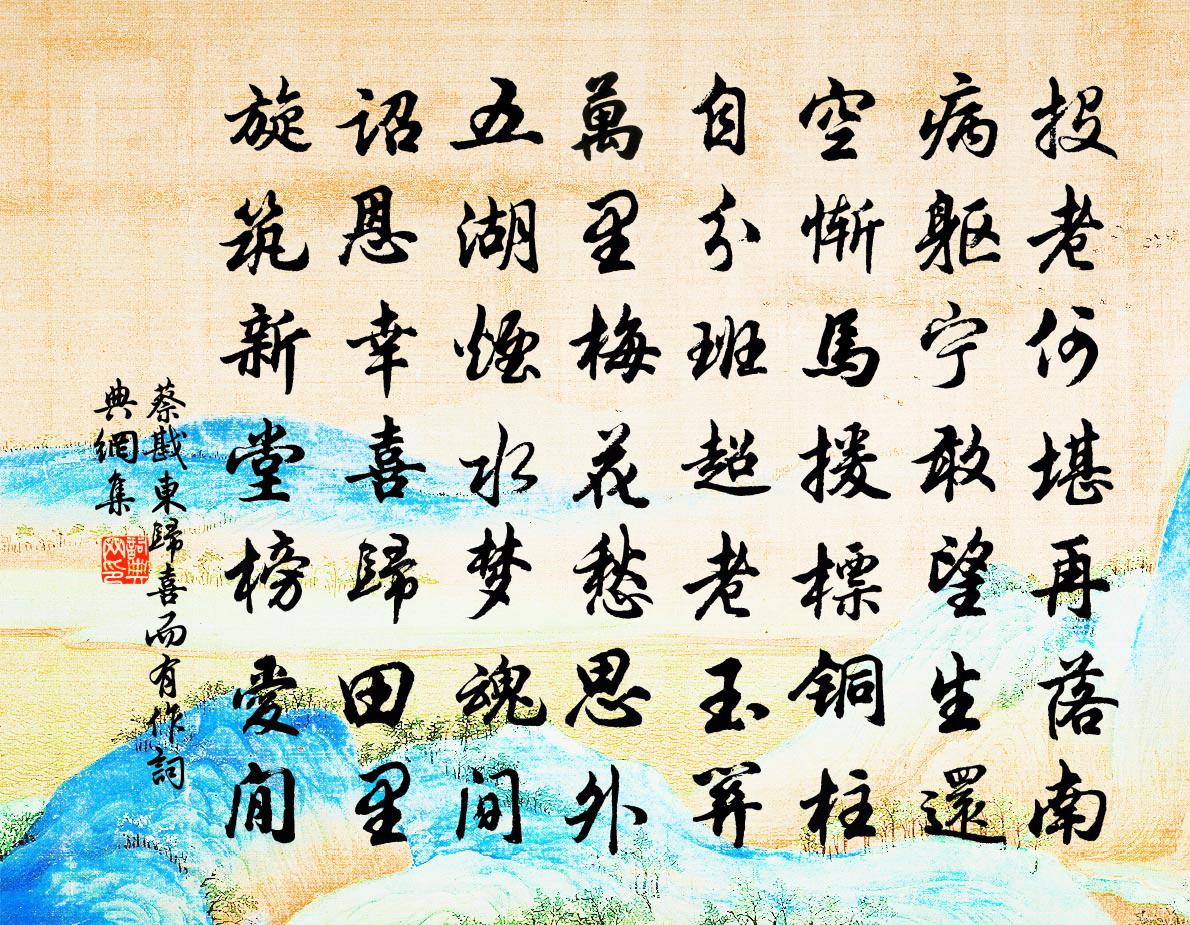 投老何堪再落南
病躯宁敢望生還
空慚馬援標铜柱
自分班超老玉関
萬里梅花愁思外
五湖煙水梦魂间
詔恩幸喜歸田里
旋筑新堂榜愛闲
蔡戡東歸喜而有作詞
典網集
詞典网印